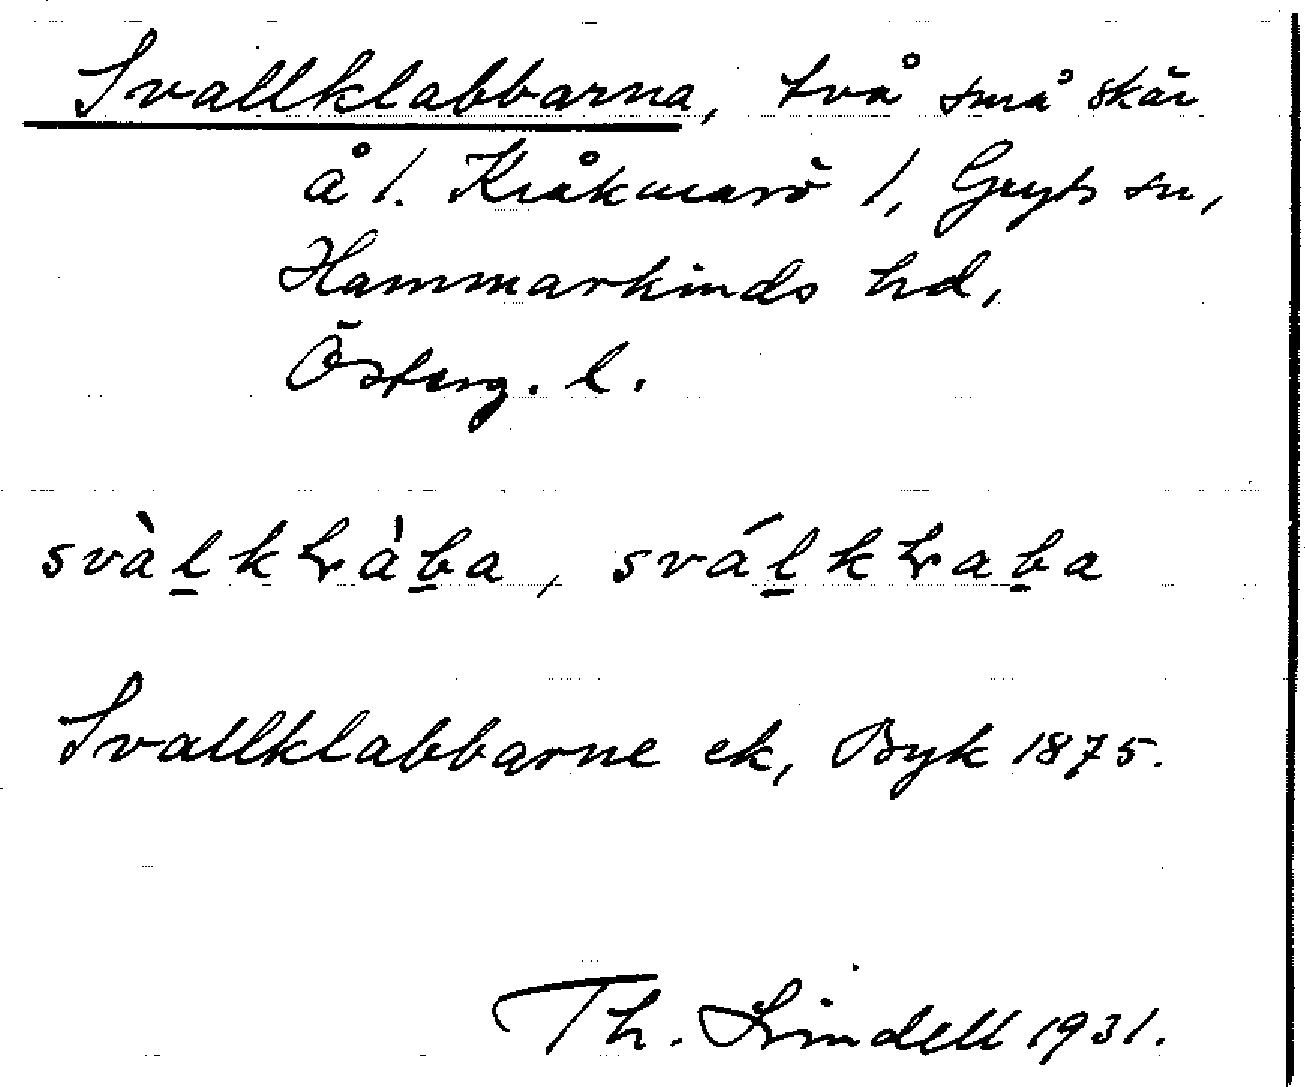 Svallklabbarna, två små skär
å 1. Kråkmarö 1, Gryts sn,
Hammarkinds hd,
Österg. l.
svàl̲kɬàb̲a, svál̲kɬab̲a
Svallklabbarne ek, Byk 1875.
Th. Lindell 1931.